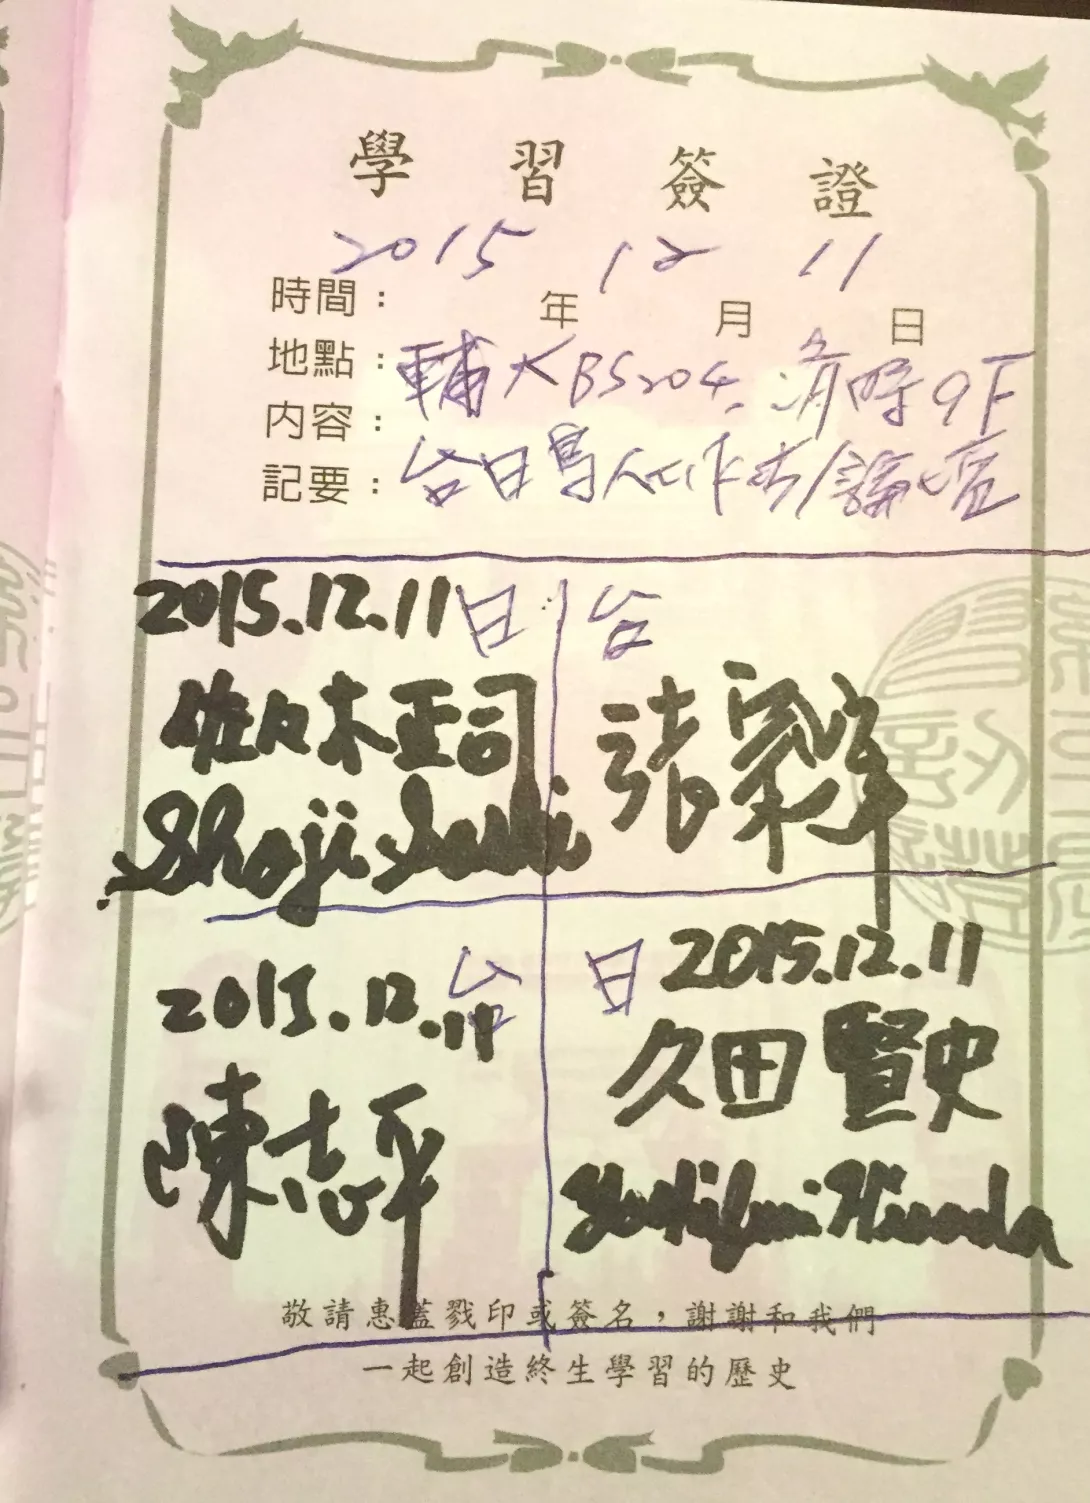 學習簽證
時間： 2015 年 12 月 11 日
地點： 輔大BS204、 9F
内容：
記要： 台日 論壇
2015.12.11 日
佐々木正司
Shoji Sasaki
台
張
2015.12.11 台
陳志平
日 2015.12.11
久田賢史
Yoshifumi Hisada
敬請惠蓋戳印或簽名，謝謝和我們
一起創造終生學習的歷史